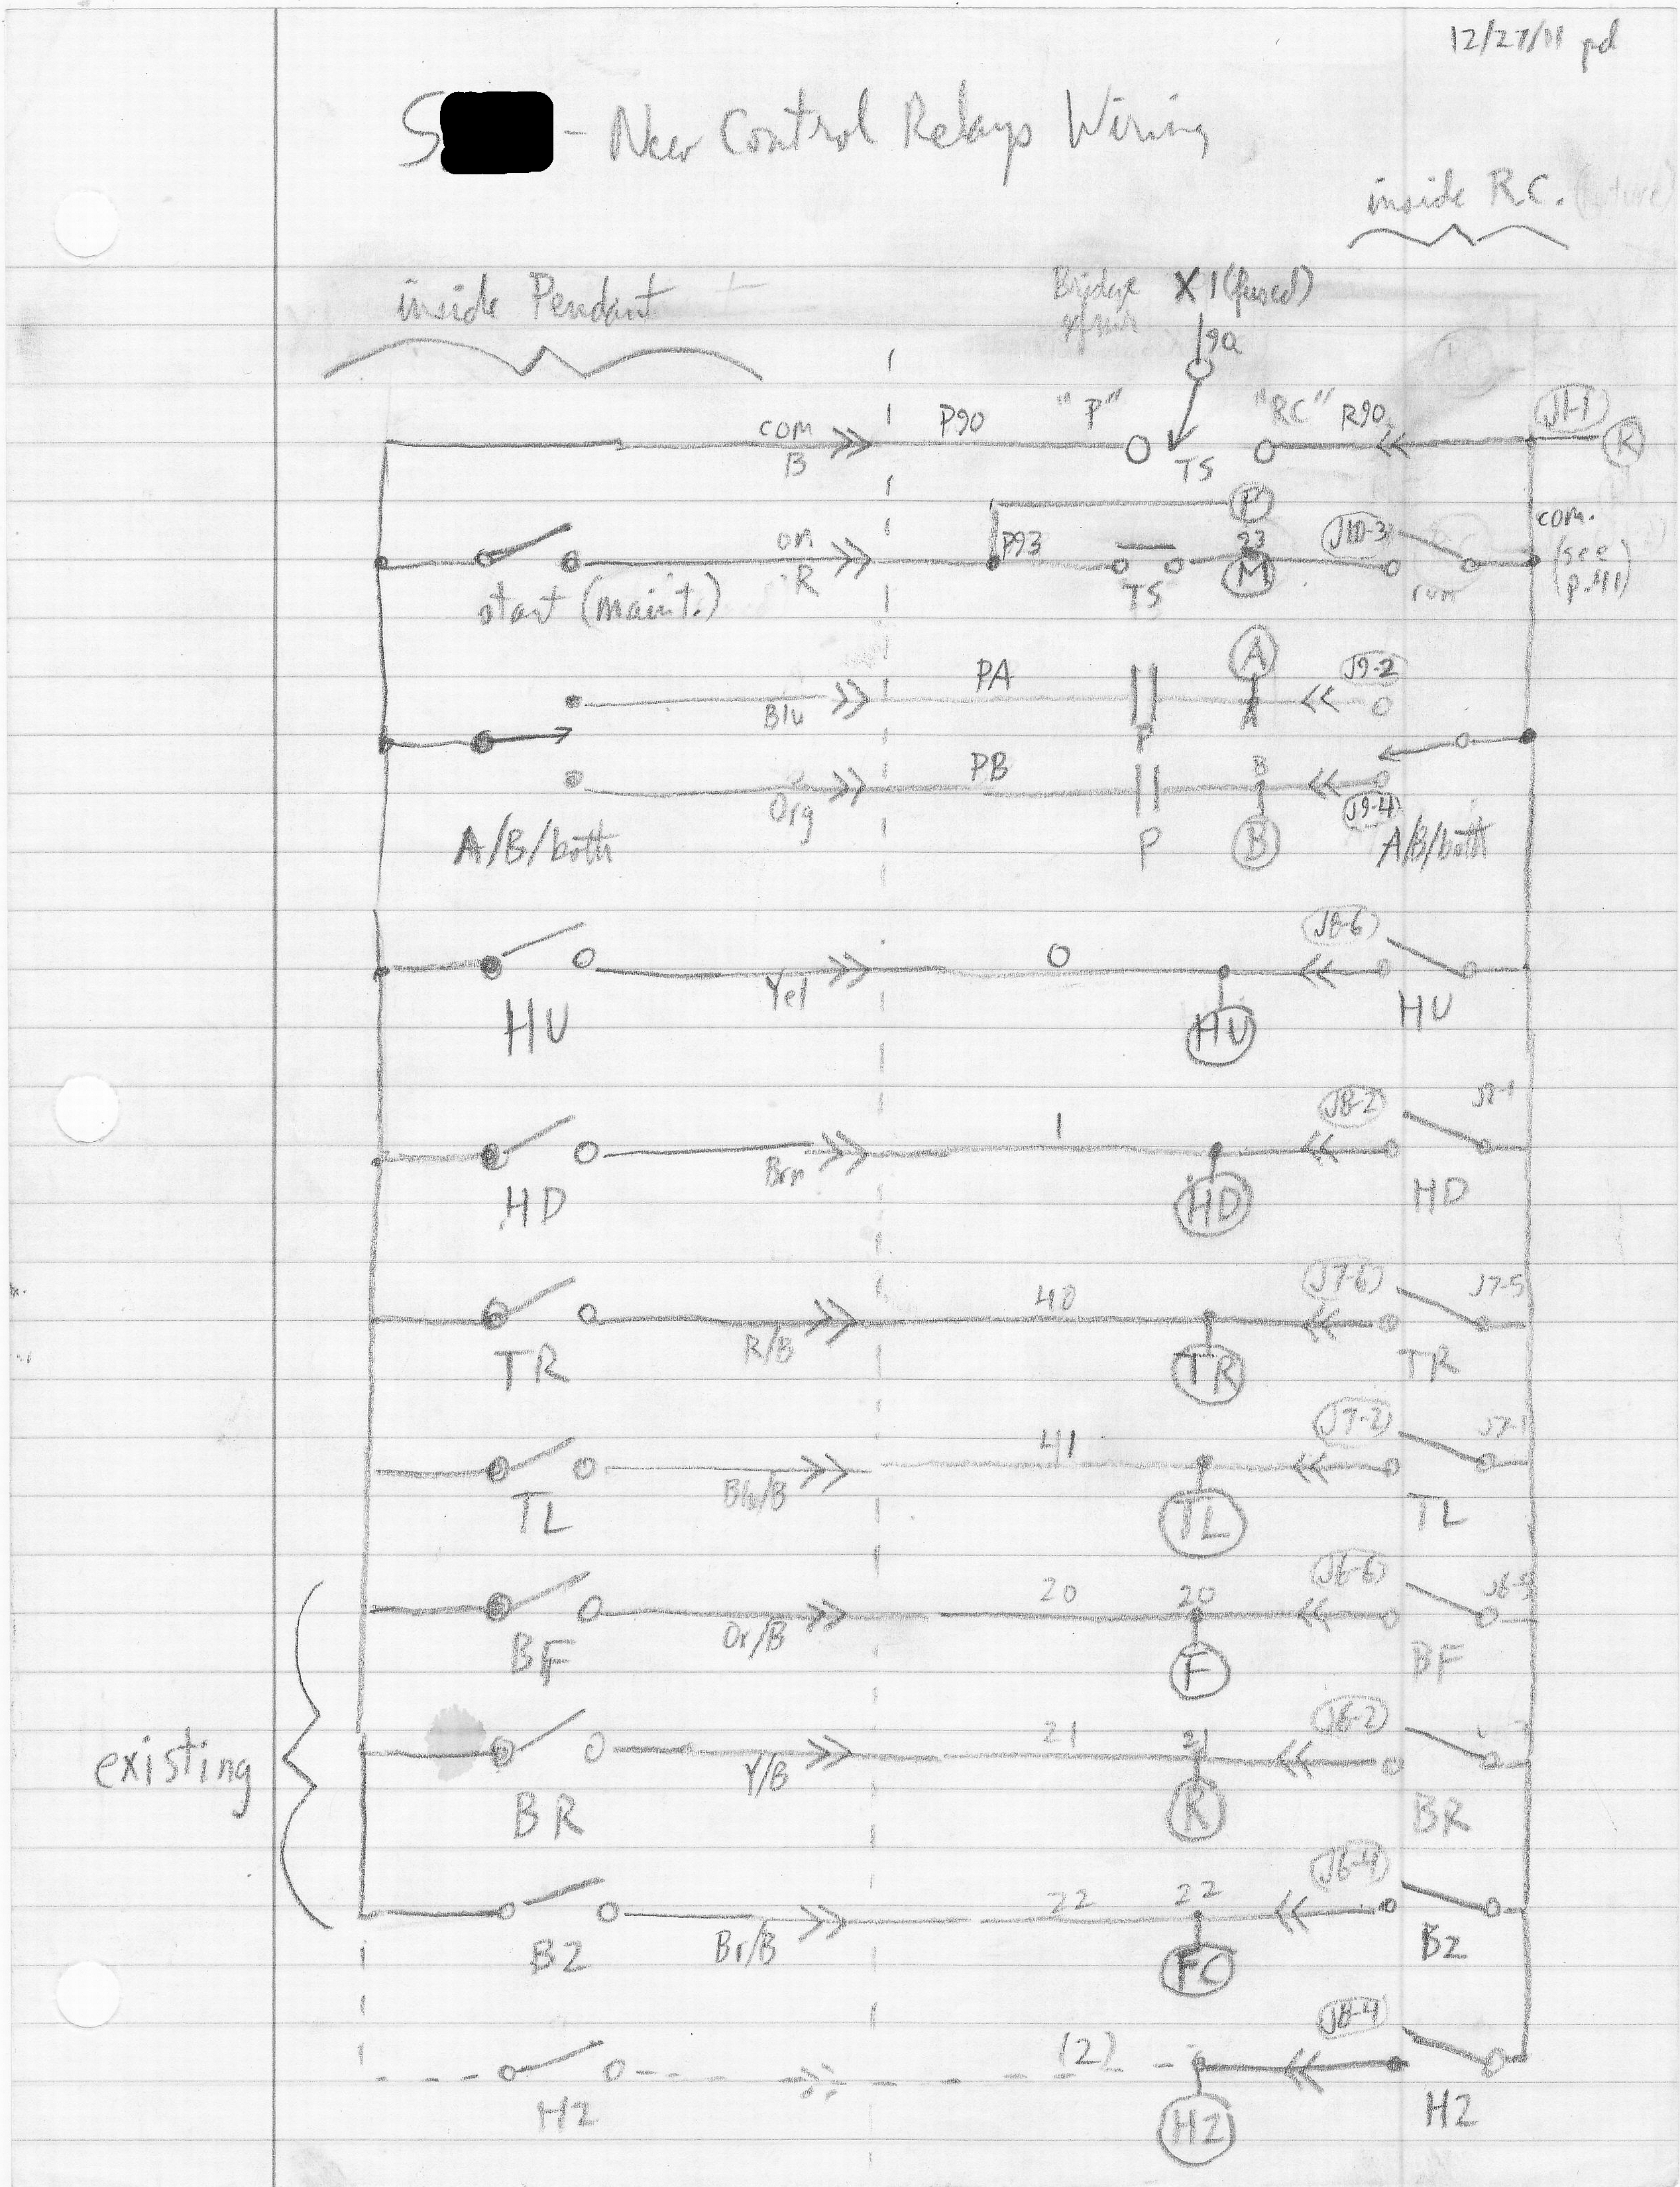 12/27/11 pd
S - New Control Relays Wiring
inside R.C. (future)
inside Pendant
Bridge X1 (fused)
9a
COM P90 "P" "RC" R90 J1-1 R
B TS
P
on P93 23 J10-3 com.
R TS M run (see p.41)
start (maint.)
A
PA J9-2
Blu P A
PB B
Org P B J9-4
A/B/both A/B/both
J8-6
Yel O
HU HU HU
J8-2 J8-1
Brn 1
HD HD HD
J7-6 J7-5
R/B 40
TR TR TR
J7-2 J7-1
Blu/B 41
TL TL TL
J6-6 J6-5
Or/B 20 20
BF F BF
J6-2
existing
Y/B 21 21
BR R BR
J6-4
Br/B 22 22
B2 FC B2
J8-4
(2)
H2 H2 H2